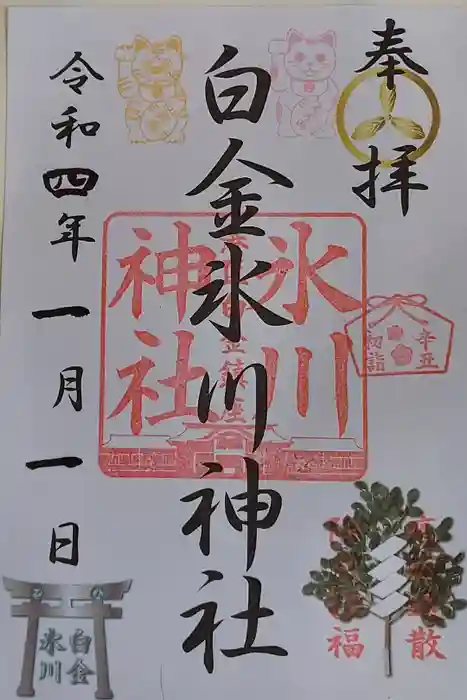 奉拝
辛丑
初詣
散
福
白金氷川神社
氷川
神社
金鎮座
令和四年一月一日
白金
氷川